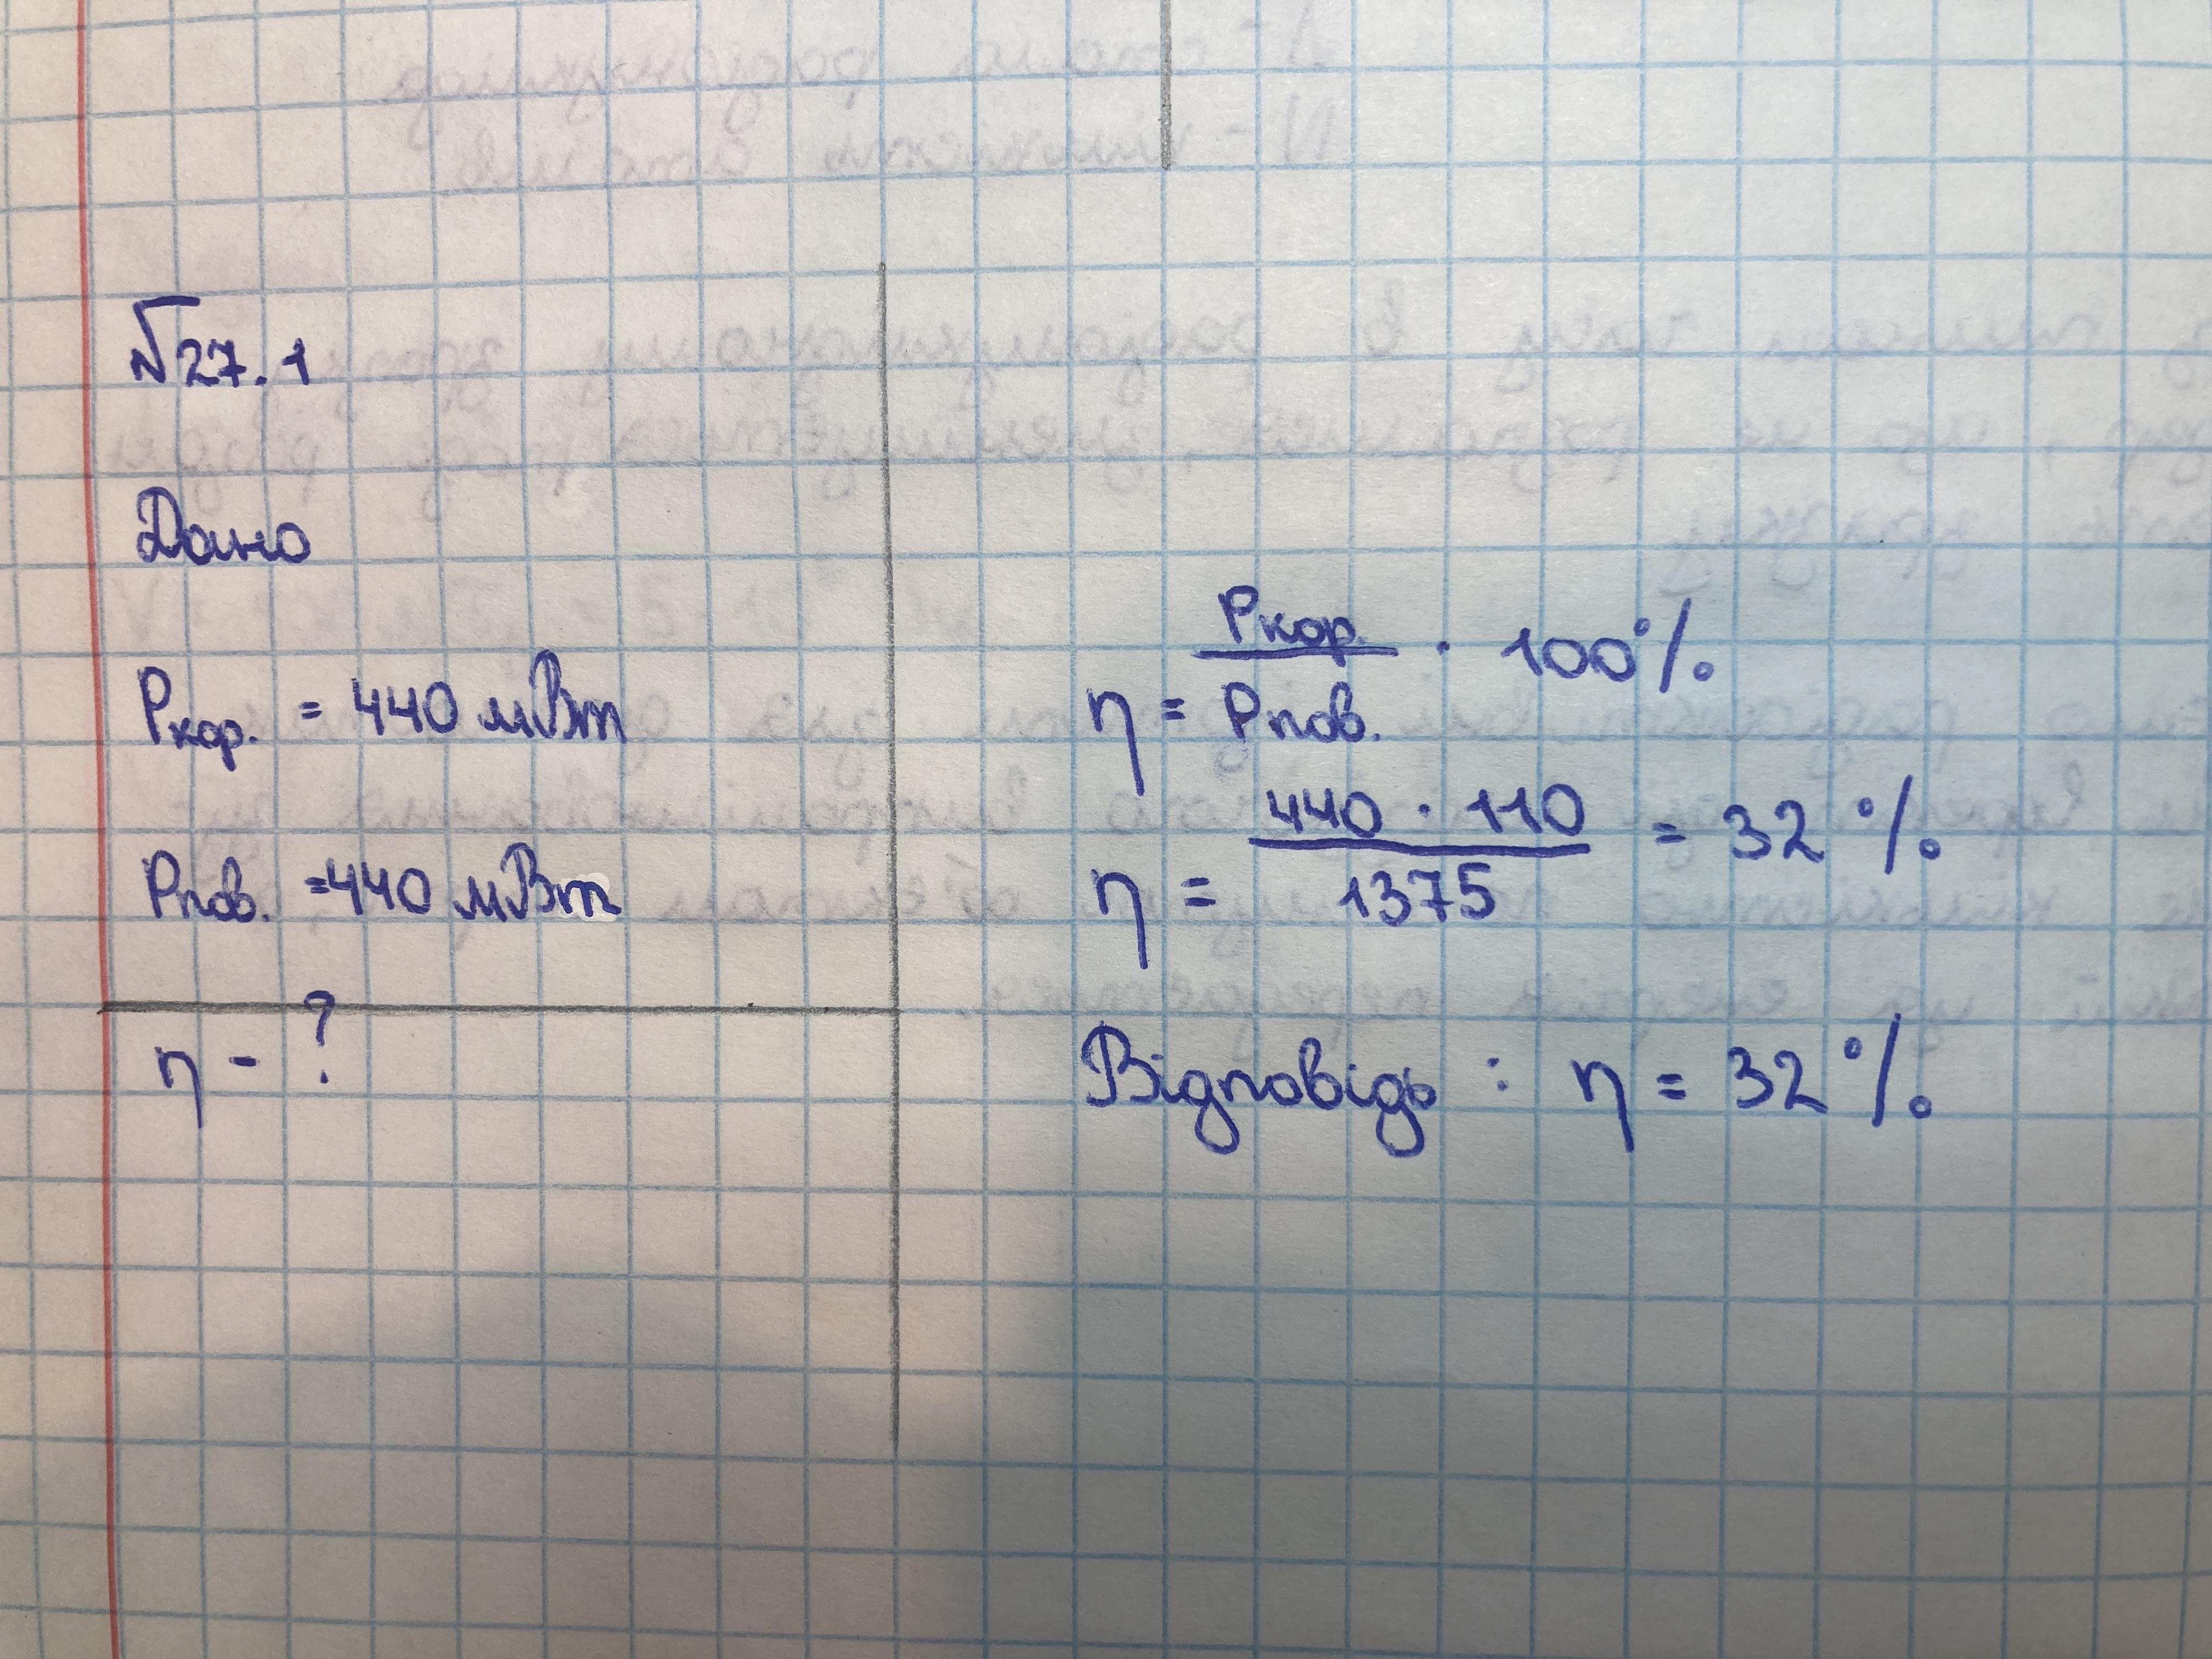 №27.1
Дано
Pкор. = 440 мВт
Pпов. = 440 мВт
η - ?
η = Pкор. / Pпов. · 100%
η = 440 · 110 / 1375 = 32 %
Відповідь : η = 32 %